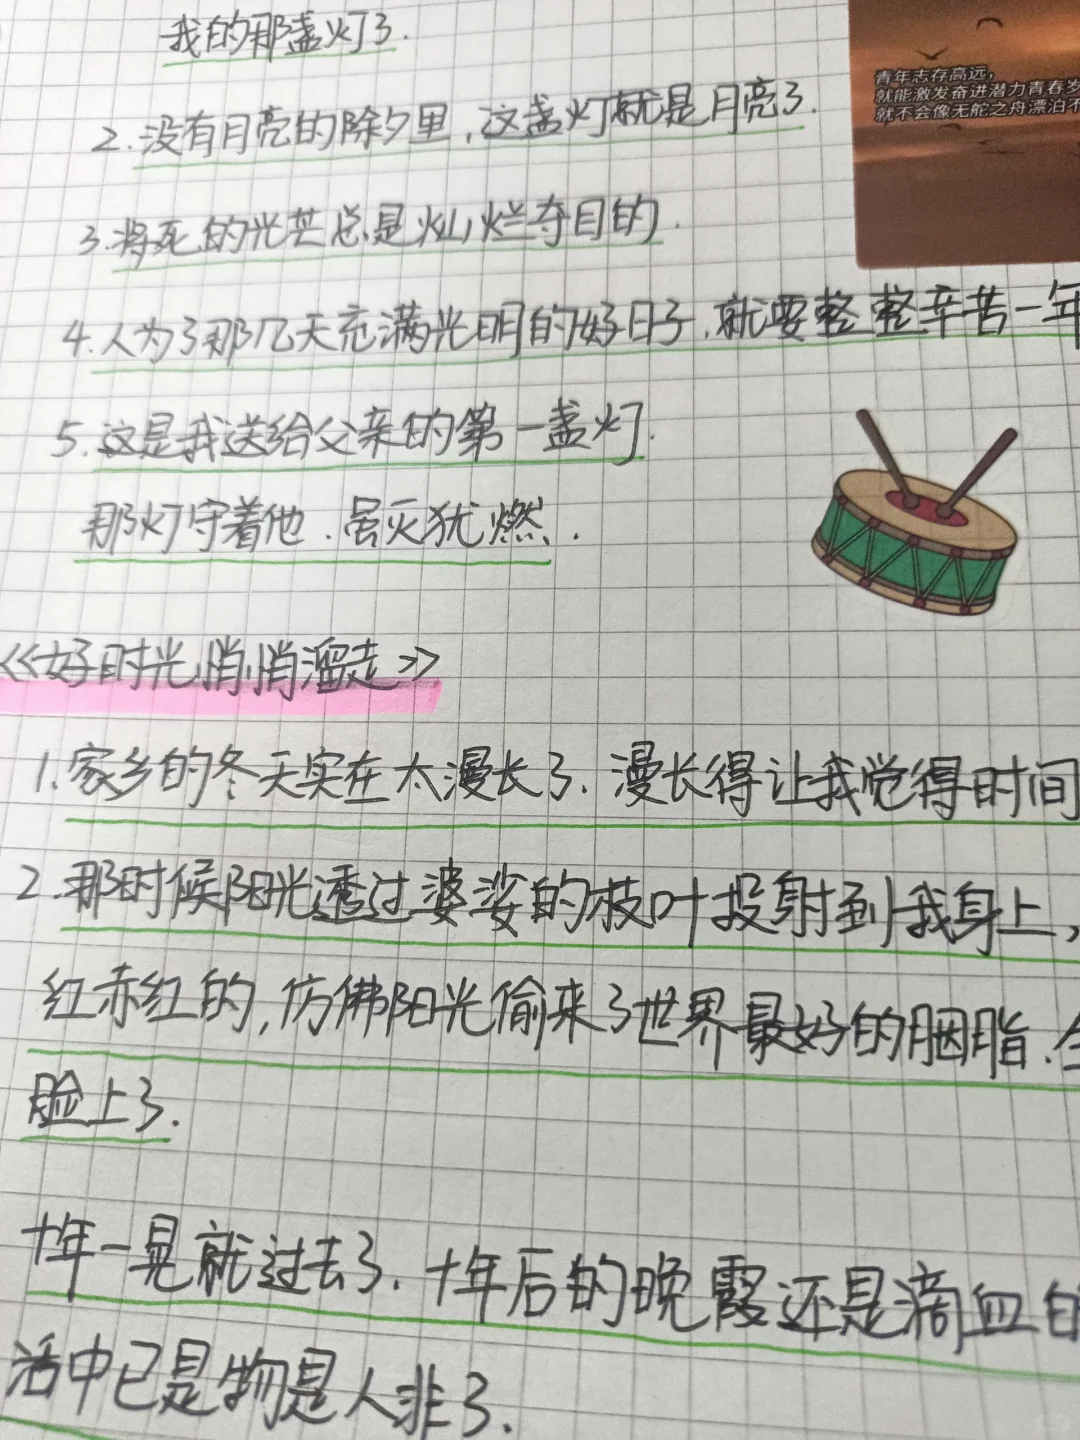 我的那盏灯了.
青年志存高远，
就能激发奋进潜力青春岁
就不会像无舵之舟漂泊不
2.没有月亮的除夕里,这盏灯就是月亮了.
3.将死的光芒总是灿烂夺目的.
4.人为了那几天充满光明的好日子,就要整整辛苦一年
5.这是我送给父亲的第一盏灯.
那灯守着他.虽灭犹燃.
《好时光悄悄溜走》
1.家乡的冬天实在太漫长了.漫长得让我觉得时间
2.那时候阳光透过婆娑的枝叶投射到我身上,
红赤红的,仿佛阳光偷来了世界最好的胭脂.全
脸上了.
十年一晃就过去了.十年后的晚霞还是滴血的
活中已是物是人非了.